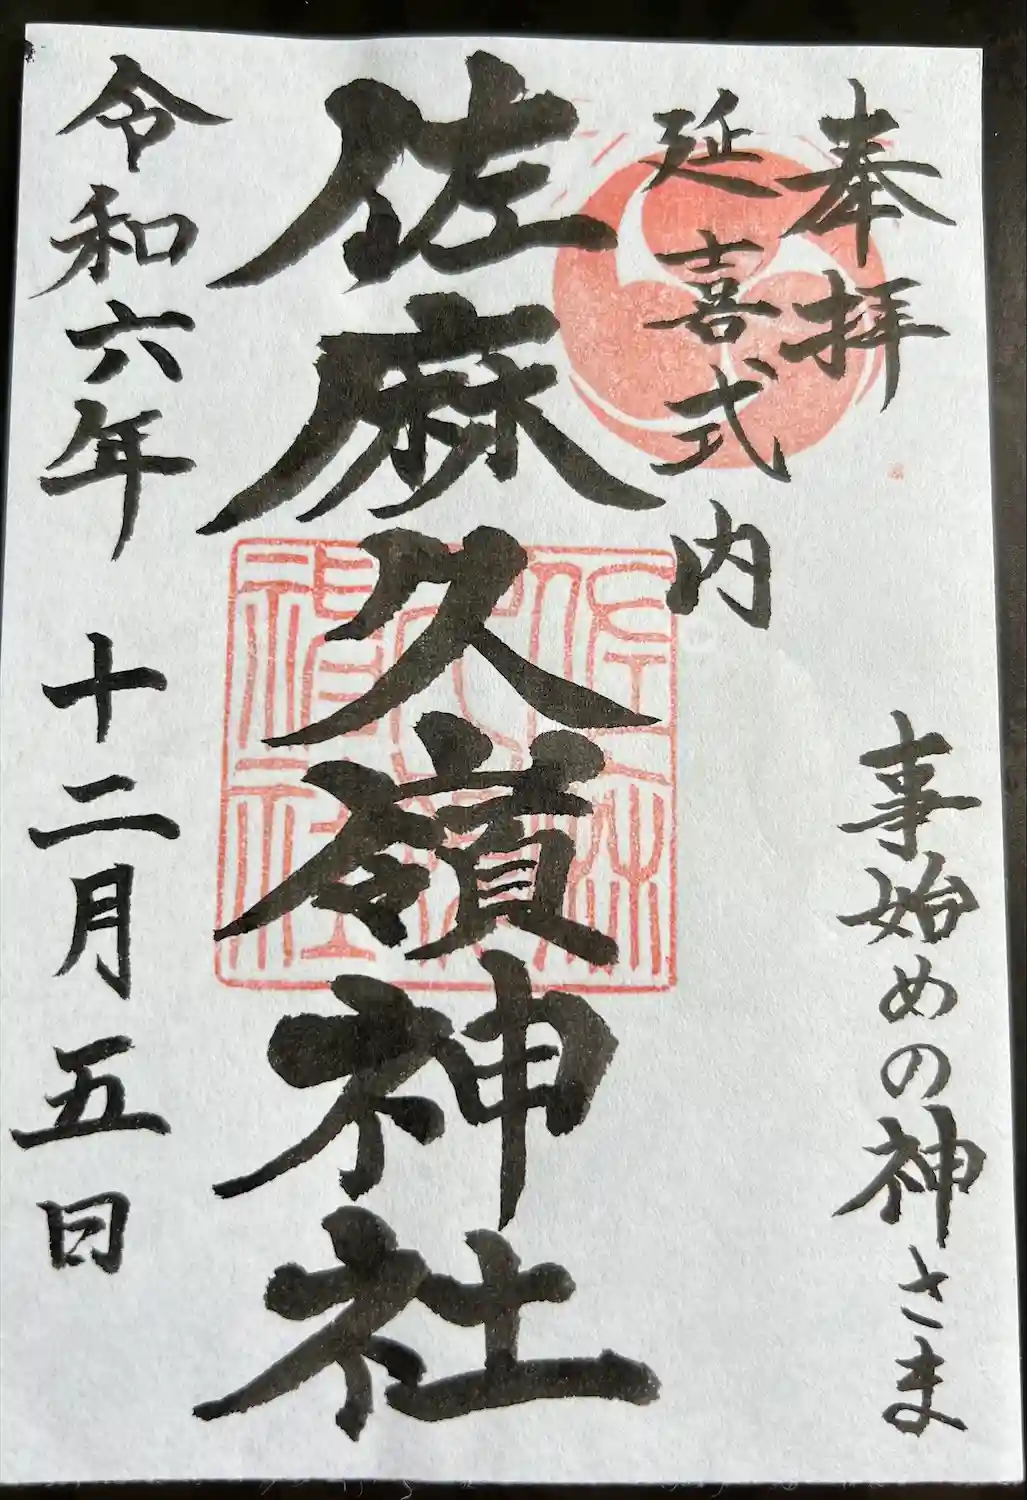 奉拝
事始めの神さま
延喜式内
佐麻久嶺神社
令和六年 十二月五日